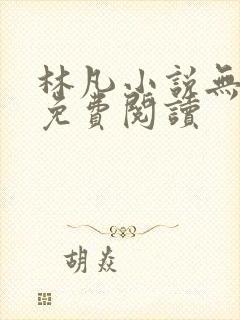 林凡小說無
免費閱讀
胡焱